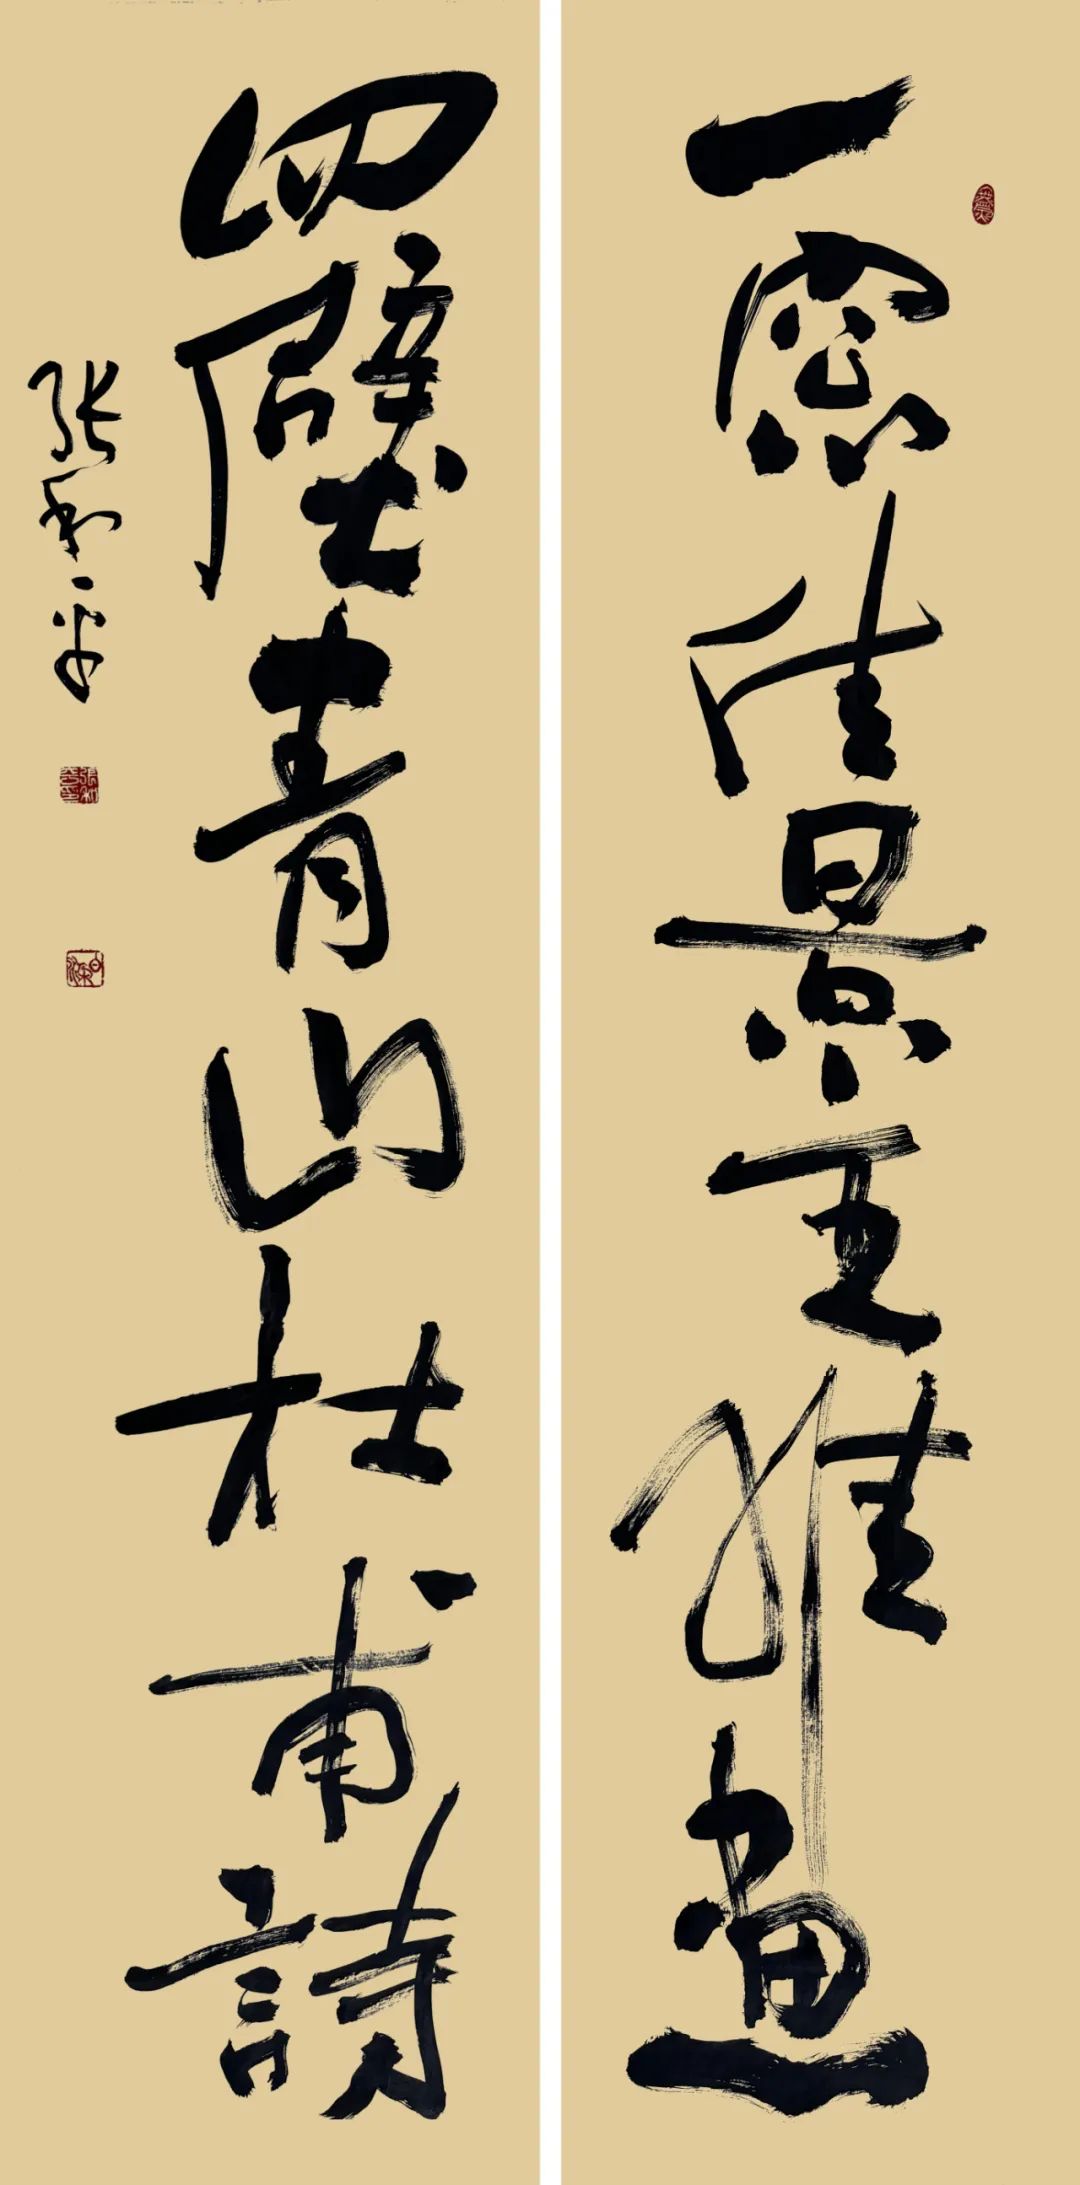 一窻佳景王維畫
四壁青山杜甫詩
张和平